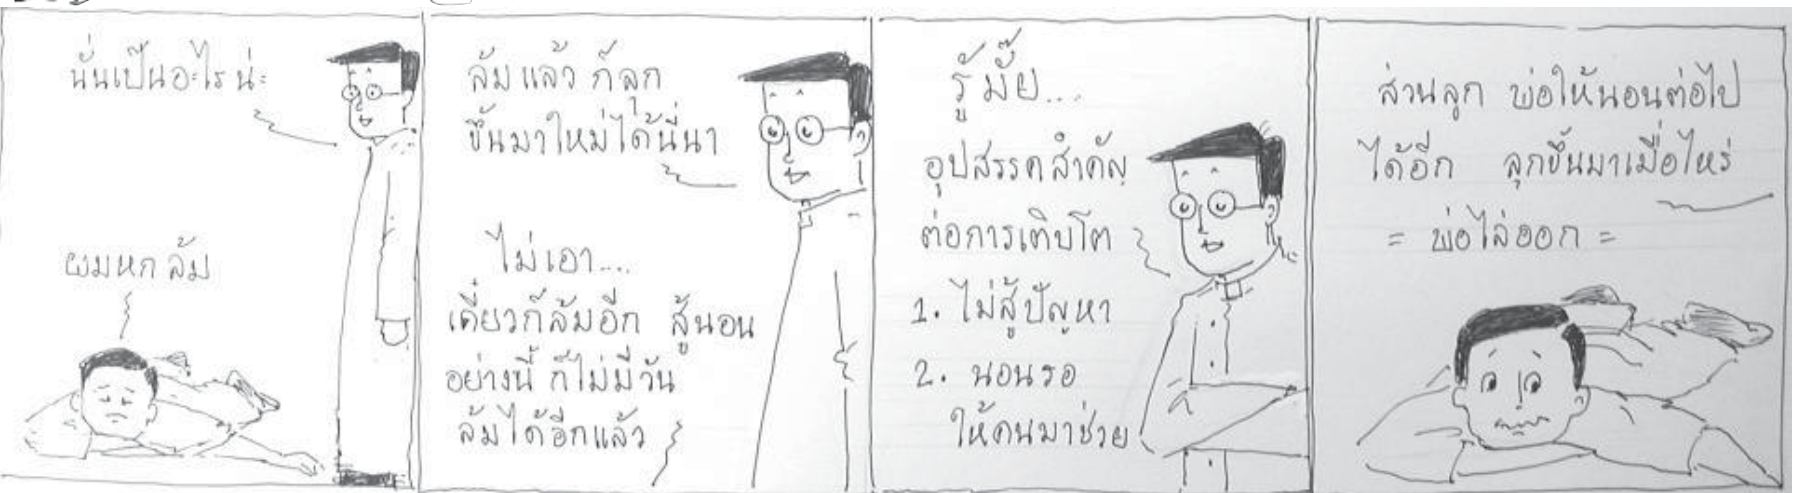 นั่นเป็นอะไรน่ะ
ผมหกล้ม
ล้มแล้ว ก็ลุก
ขึ้นมาใหม่ได้นี่นา
ไม่เอา....
เดี๋ยวก็ล้มอีก สู้นอน
อย่างนี้ ก็ไม่มีวัน
ล้มได้อีกแล้ว
รู้มั๊ย...
อุปสรรคสำคัญ
ต่อการเติบโต
1. ไม่สู้ปัญหา
2. นอนรอ
ให้คนมาช่วย
ส่วนลูก พ่อให้นอนต่อไป
ได้อีก ลุกขึ้นมาเมื่อไหร่
= พ่อไล่ออก =